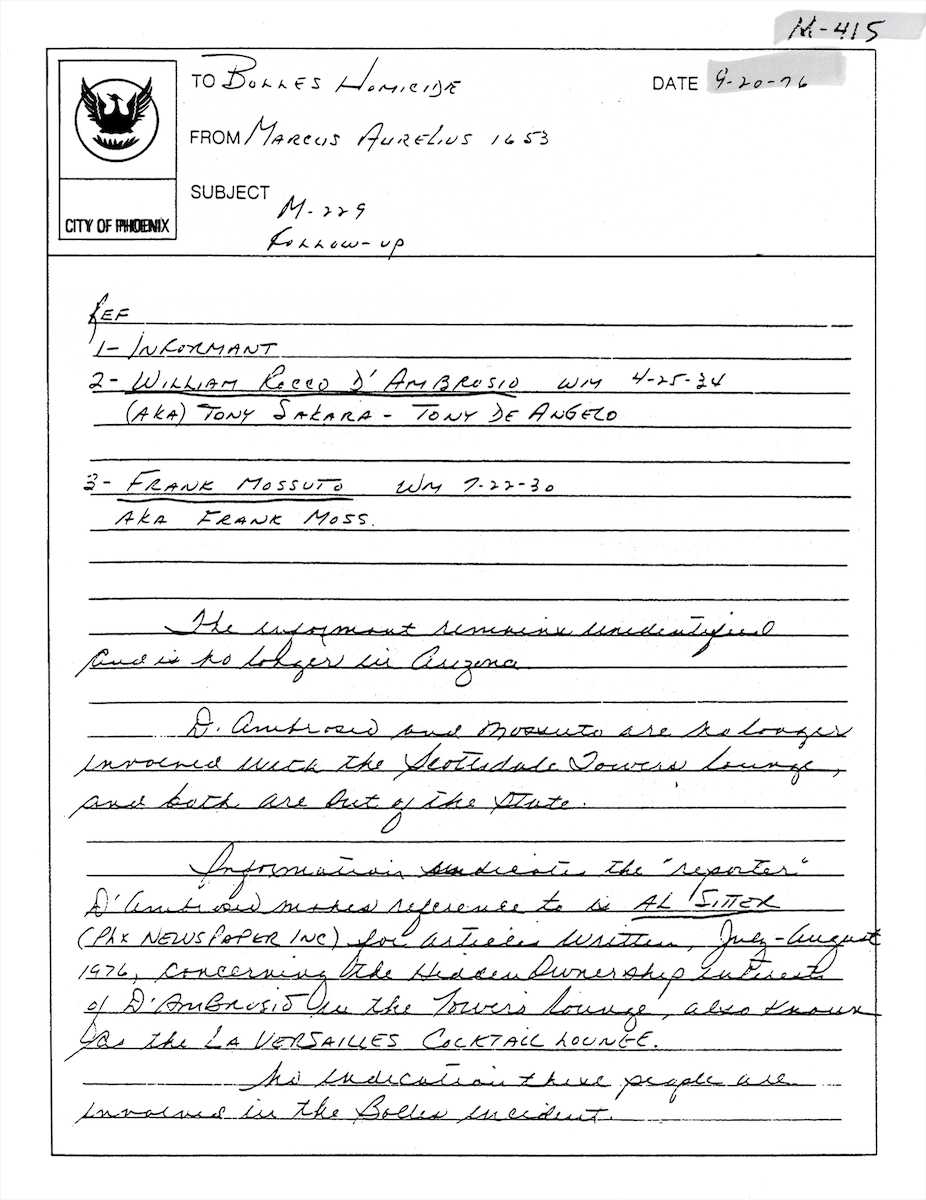 M-415
TO Bolles Homicide DATE 9-20-76
FROM Marcus Aurelius 1653
SUBJECT
M-229
Follow-up
CITY OF PHOENIX
Ref
1- Informant
2- William Rocco D'Ambrosio WM 4-25-34
(AKA) Tony Sakara - Tony De Angelo
3- Frank Mossuto WM 7-22-30
AKA Frank Moss.
The informant remains unidentified
and is no longer in Arizona
D. Ambrosio and Mossuto are no longer
involved with the Scottsdale Towers Lounge,
and both are out of the State.
Information indicates the "reporter"
D'Ambrosio makes reference to is AL SITTER
(Phx NEWSPAPER INC) for articles written, July-August
1976, concerning the Hidden Ownership interest
of D'AMBROSIO in the Towers Lounge, also known
as the LA VERSAILLES COCKTAIL LOUNGE.
No indication these people are
involved in the Bolles incident.